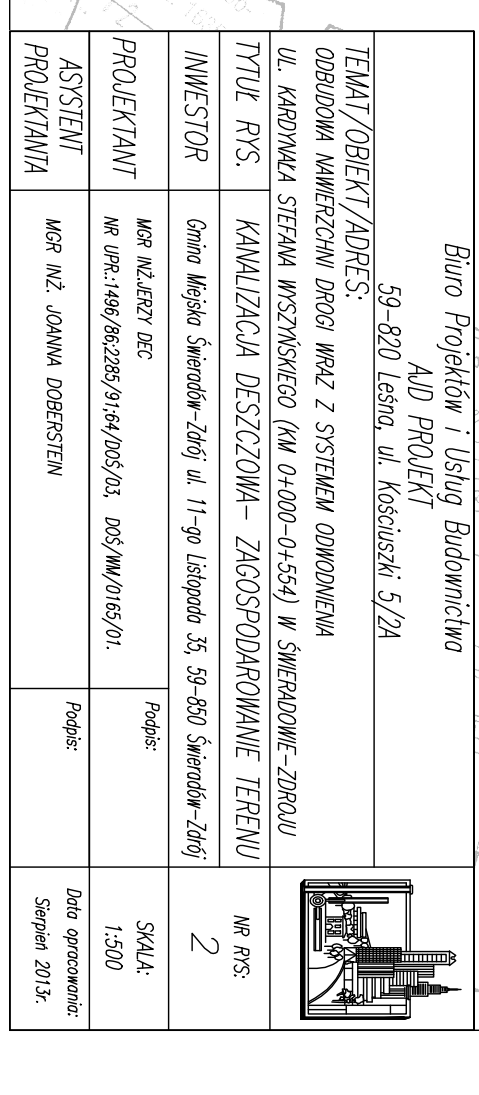 Biuro Projektów i Usług Budownictwa
AJD PROJEKT
59-820 Leśna, ul. Kościuszki 5/2A
TEMAT/OBIEKT/ADRES:
ODBUDOWA NAWIERZCHNI DROGI WRAZ Z SYSTEMEM ODWODNIENIA
UL. KARDYNAŁA STEFANA WYSZYŃSKIEGO (KM 0+000-0+554) W ŚWIERADOWIE-ZDROJU
TYTUŁ RYS.
KANALIZACJA DESZCZOWA- ZAGOSPODAROWANIE TERENU
NR RYS:
2
INWESTOR
Gmina Miejska Świeradów-Zdrój ul. 11-go Listopada 35, 59-850 Świeradów-Zdrój
PROJEKTANT
MGR INŻ.JERZY DEC
NR UPR.:1496/86;2285/91;64/DOŚ/03, DOŚ/WM/0165/01.
Podpis:
SKALA:
1:500
ASYSTENT
PROJEKTANTA
MGR INŻ. JOANNA DOBERSTEIN
Podpis:
Data opracowania:
Sierpień 2013r.